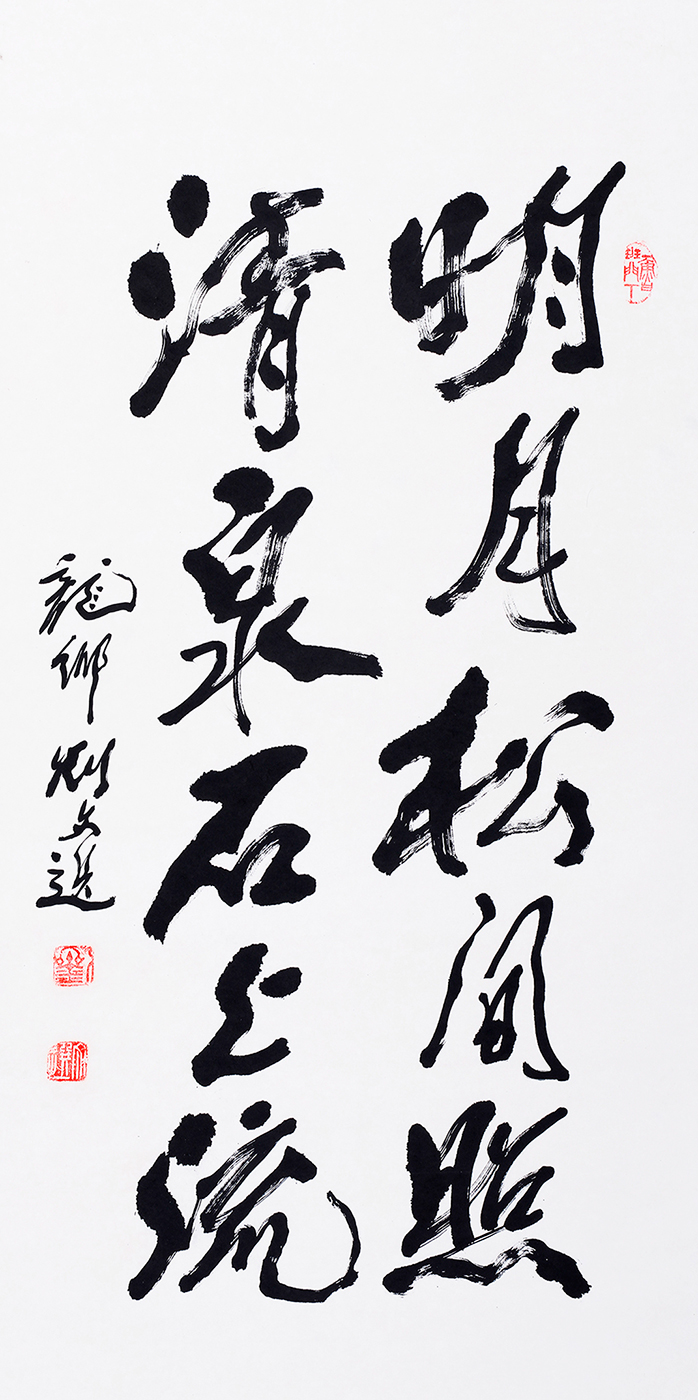 明月松间照
清泉石上流
龍鄉刘文选